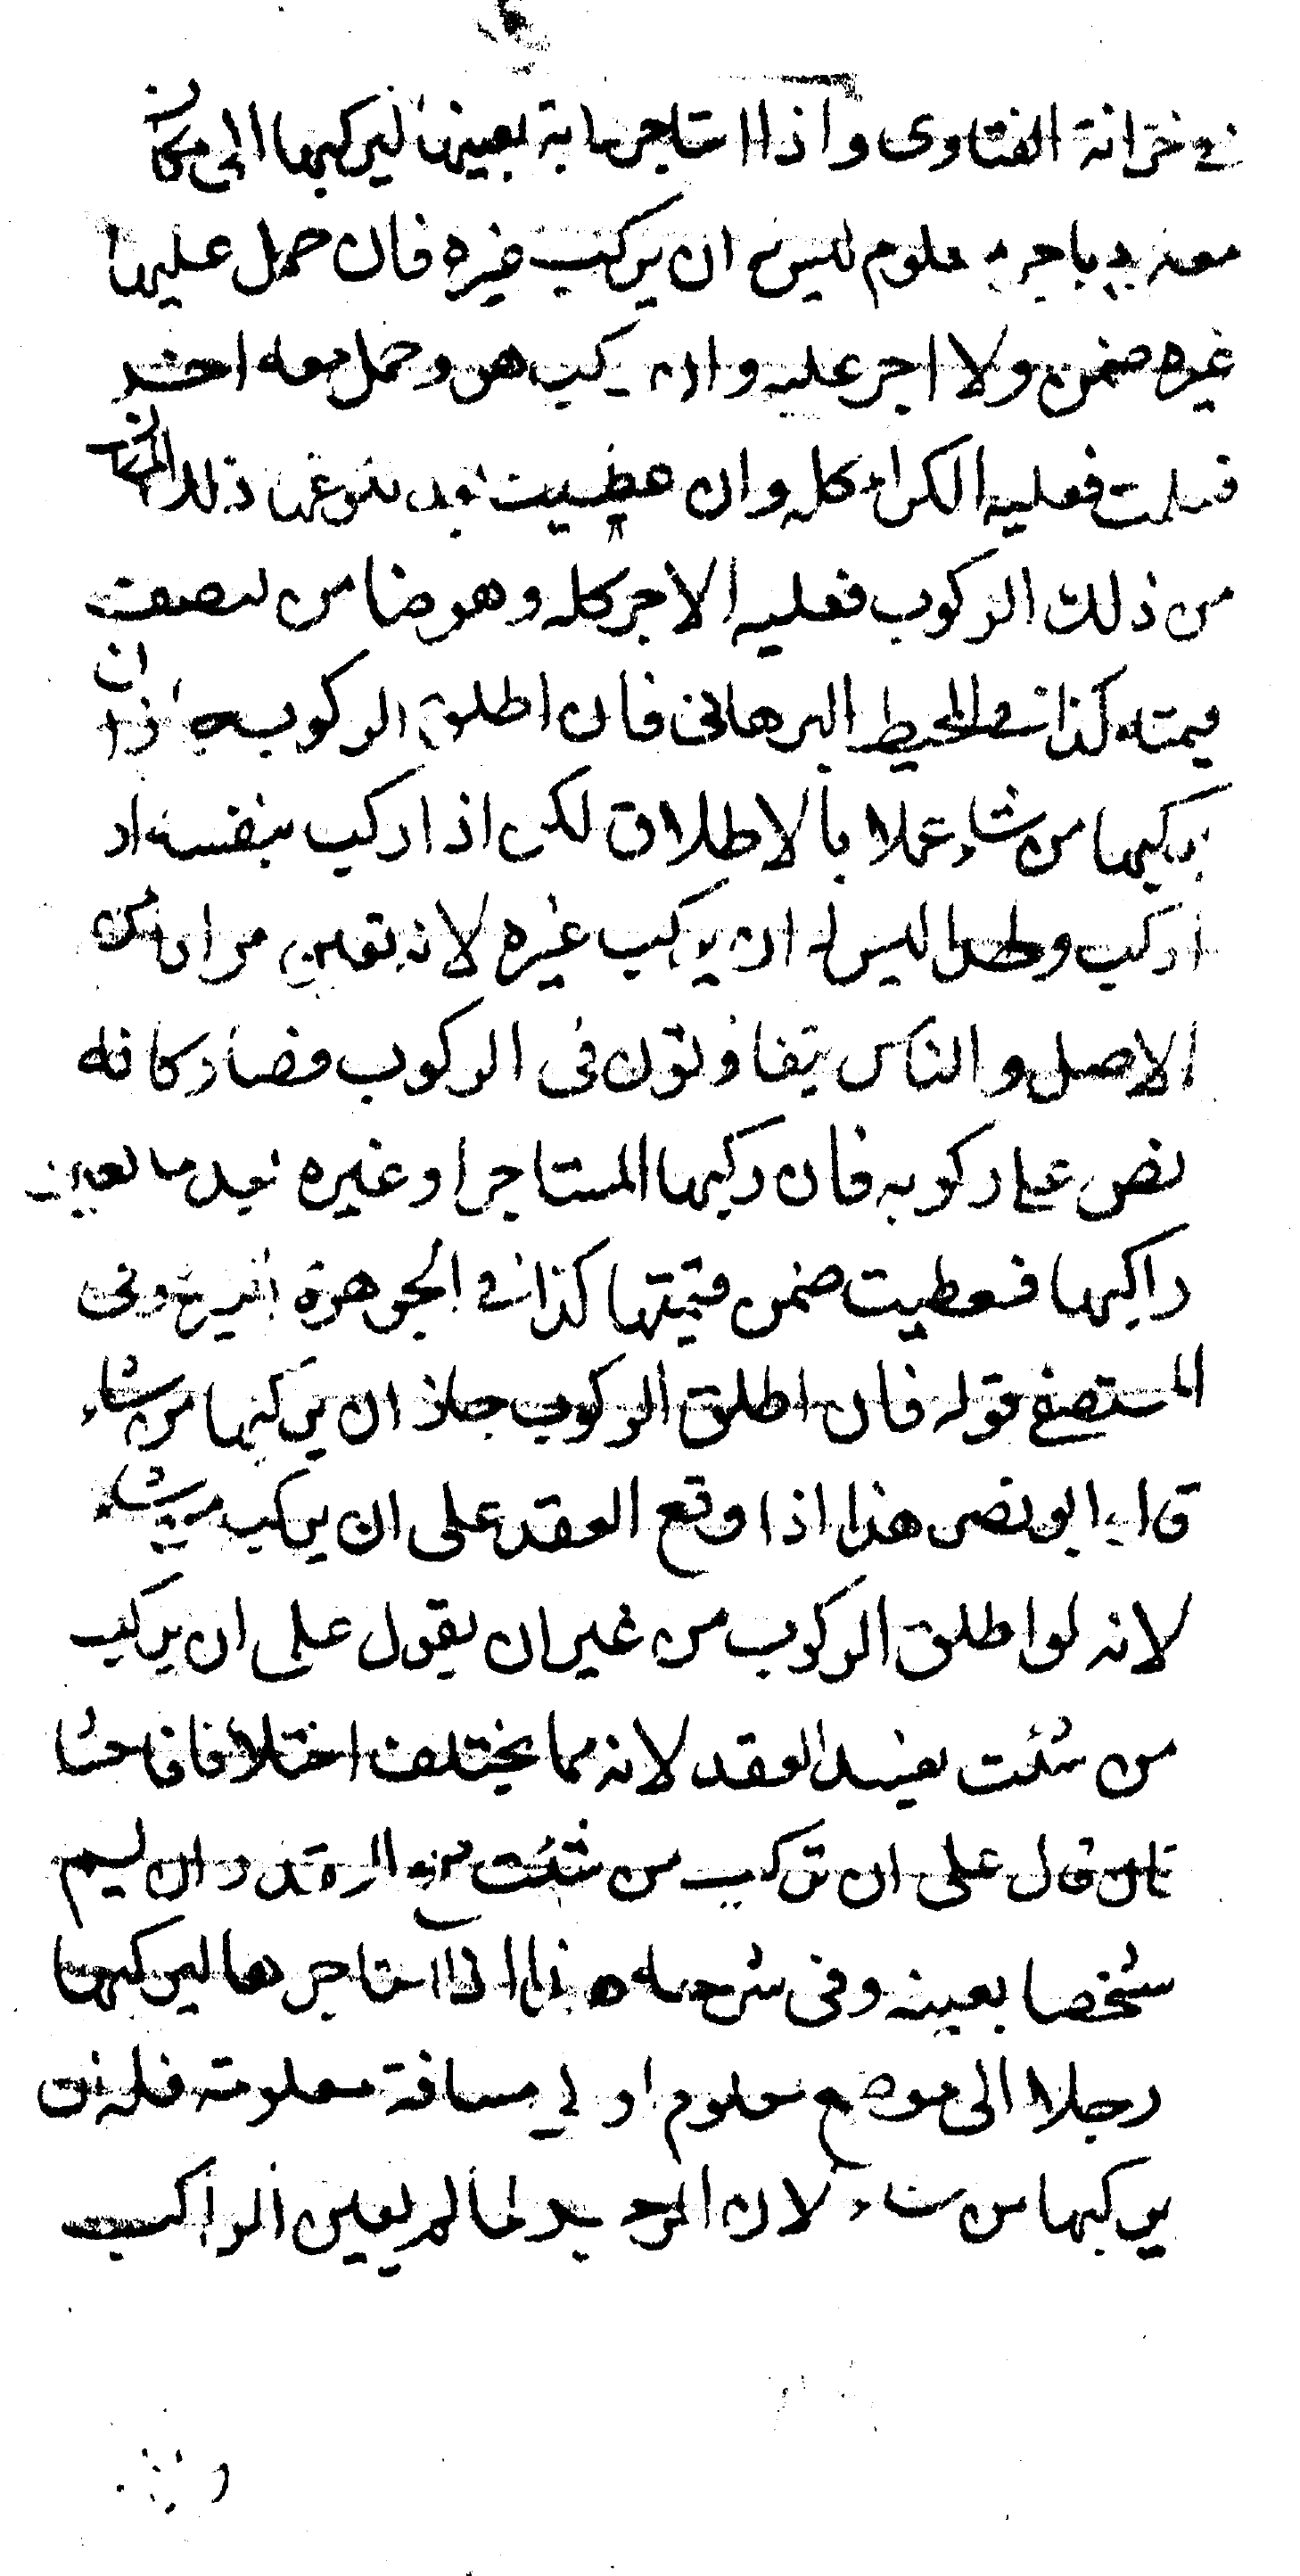 في خزانة الفتاوى واذا استاجر دابة بعينها ليركبها الى مكان
معلوم باجر معلوم ليس له ان يركب غيره فان حمل عليها
غيره ضمن ولا اجر عليه وان ركب هو وحمل معه اخر
فسلمت فعليه الكراء كله وان عطبت بعد بلوغها ذلك المكان
من ذلك الركوب فعليه الاجر كله وهو ضامن لنصف
قيمته كذا في المحيط البرهاني فان اطلق الركوب له ان
يركبها من شاء عملا بالاطلاق لكن اذا ركب بنفسه او
اركب واحدا ليس له ان يركب غيره لانه تعين مرادا من
الاصل والناس يتفاوتون في الركوب فصار كانه
نص على ركوبه فان ركبها المستاجر او غيره بعد ما تعين
راكبها فعطبت ضمن قيمتها كذا في الجوهرة وفي
المستصفى قوله فان اطلق الركوب جاز ان يركبها من شاء
قال ابو نصر هذا اذا وقع العقد على ان يركب من شاء
لانه لو اطلق الركوب من غير ان يقول على ان يركب
من شئت يفسد العقد لانه مما يختلف اختلافا فاحشا
فان قال على ان تركب من شئت صح العقد وان لم يسم
شخصا بعينه وفي شرحه هذا اذا استاجرها ليركبها
رجلا الى موضع معلوم او في مسافة معلومة فله ان
يركبها من شاء لان لما لم يعين الراكب